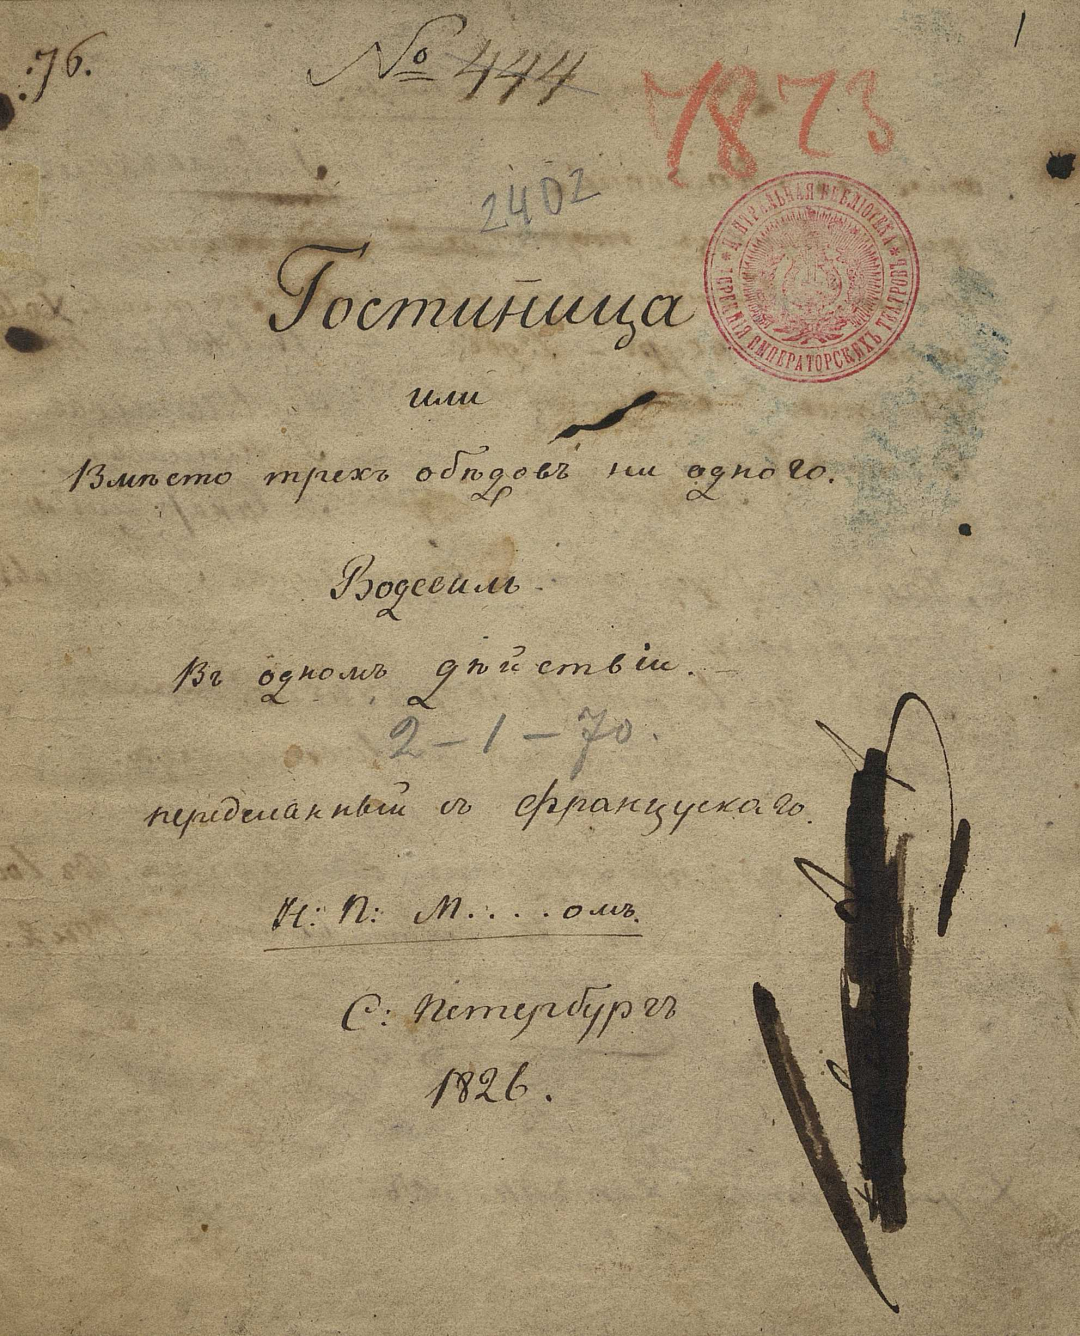 :76.
№ 444
1
7873
2402
ЦЕНТРАЛЬНАЯ БИБЛІОТЕКА * РУССКІЯ ИМПЕРАТОРСКИХЪ ТЕАТРОВЪ *
Гостиница
или
Вмѣсто трехъ обѣдовъ ни одного.
Водевиль
Въ одномъ дѣйствіи.
2-1-70.
передѣланный съ француского.
Н: П: М....омъ.
С: Петербургъ
1826.